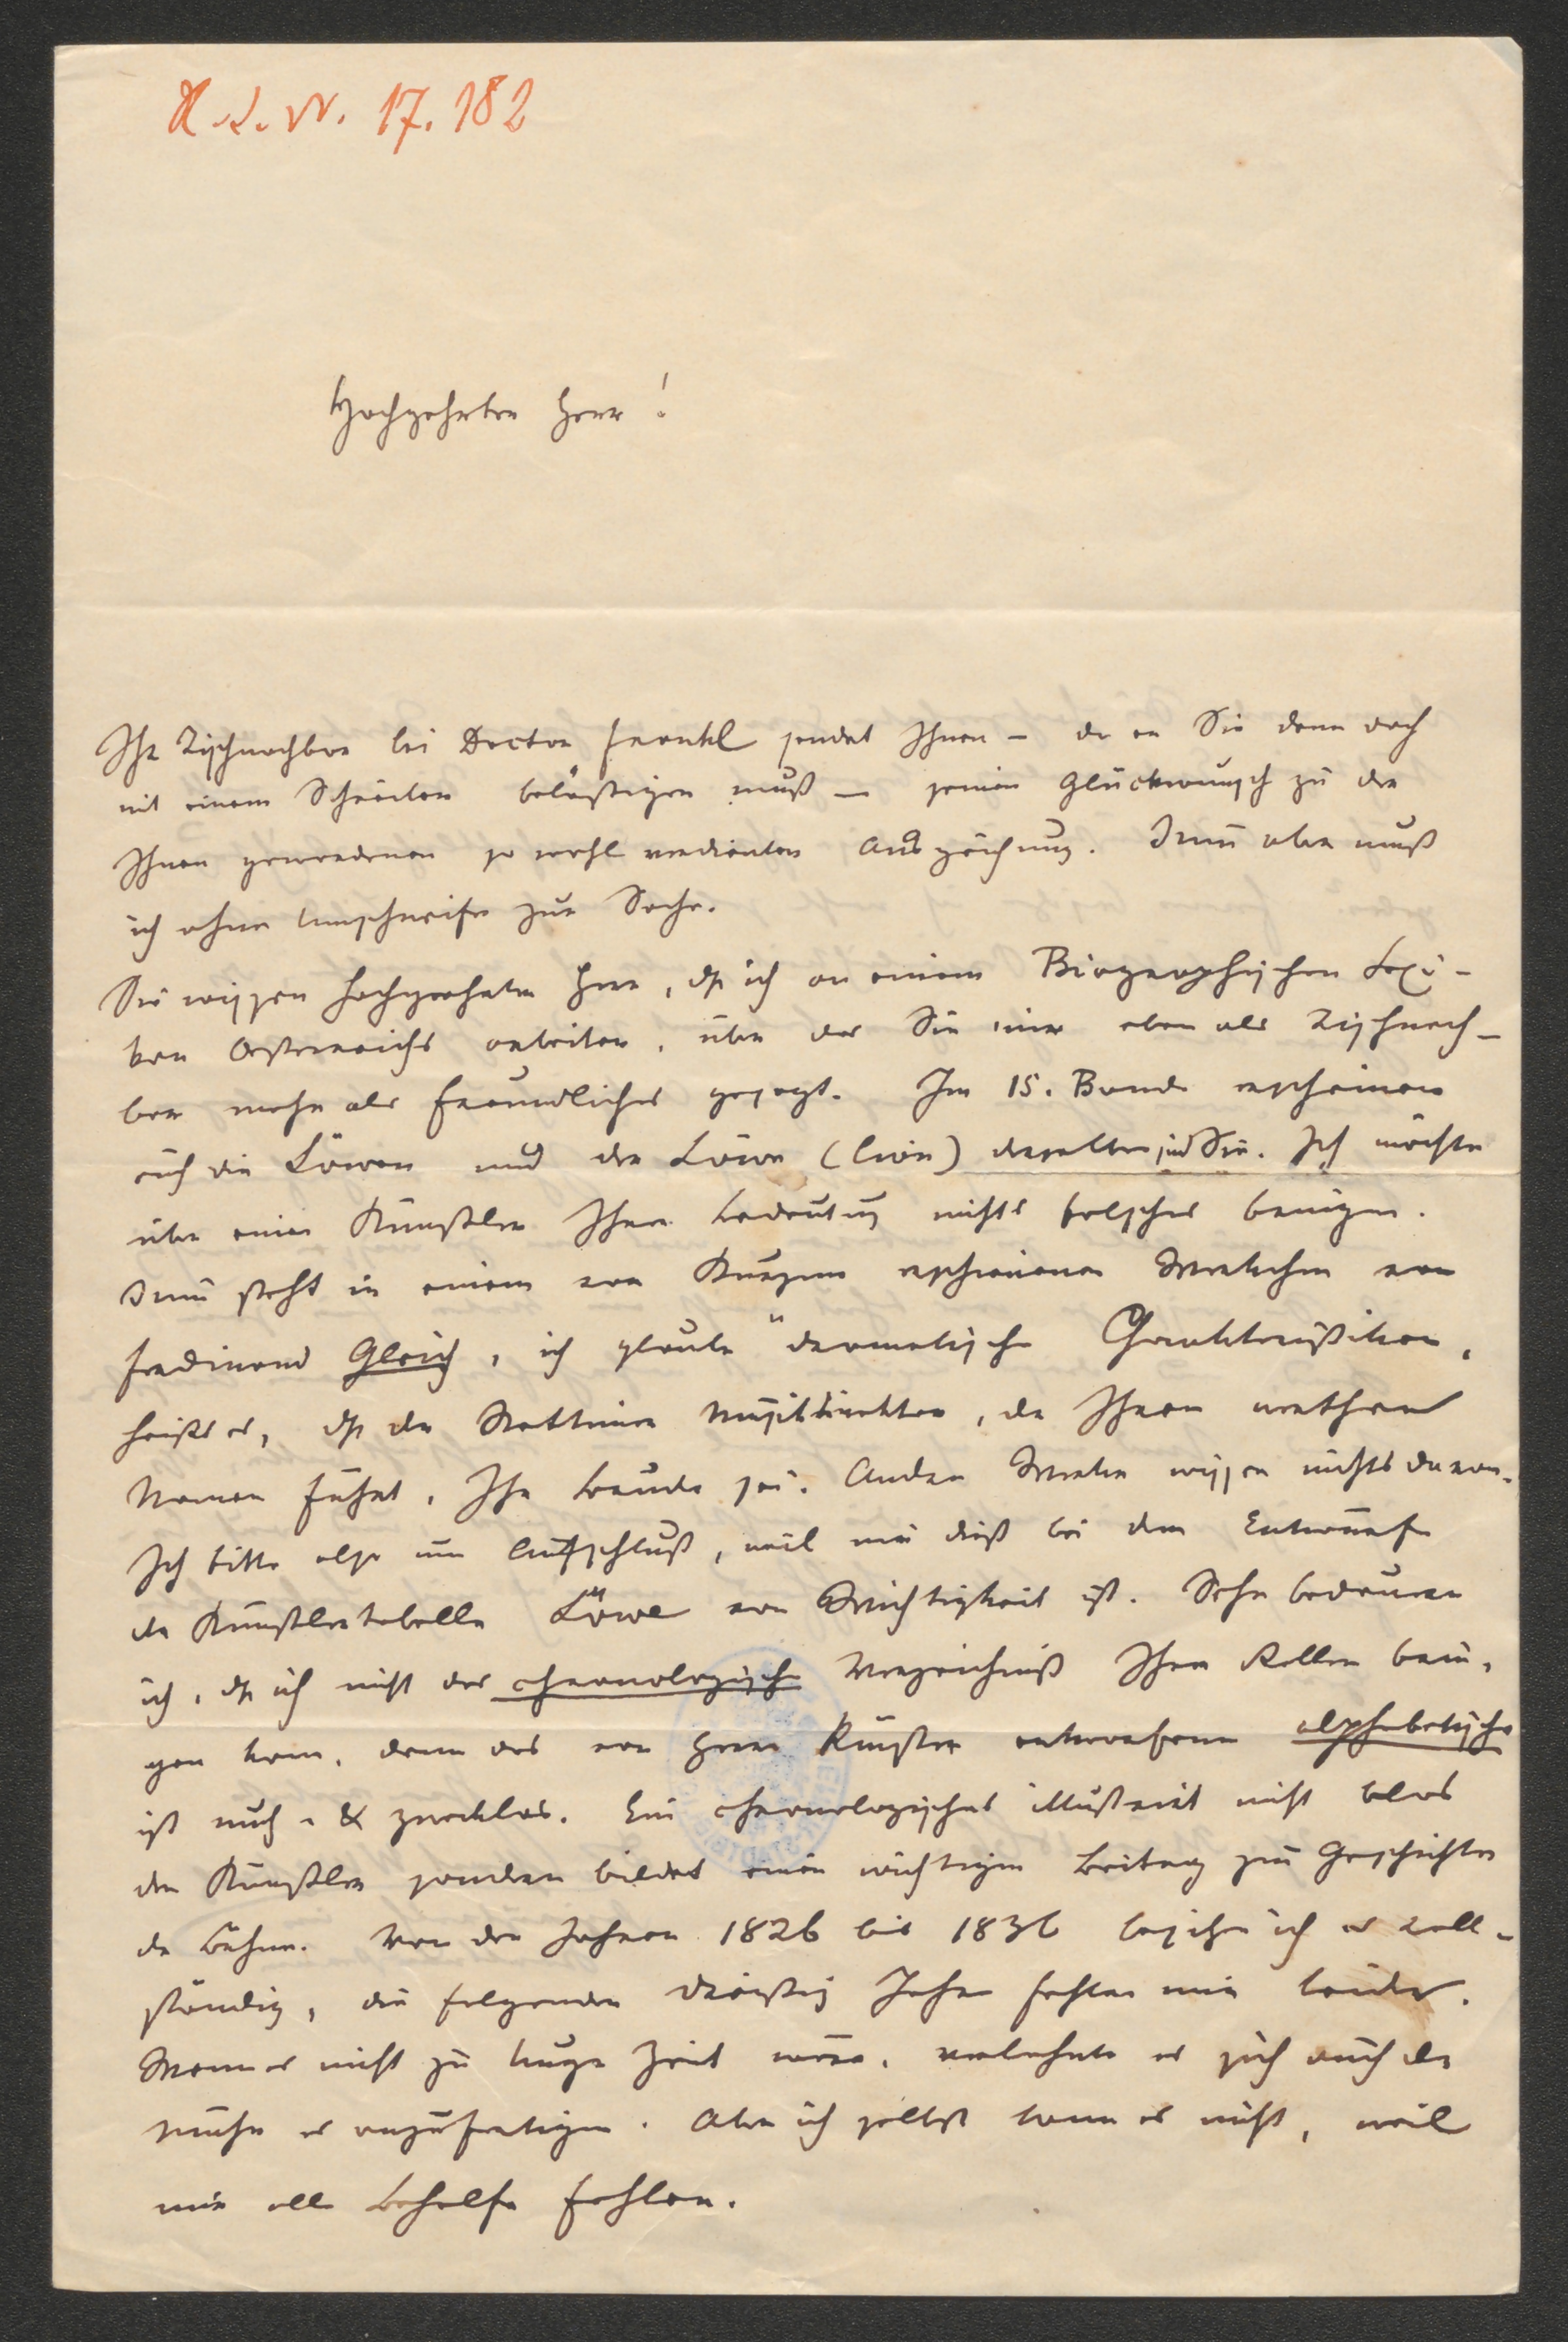 H. I. N. 17.182
Hochgeehrter Herr!
Ihr Tischnachbar bei Doctor Frankl sendet Ihnen – da er Sie denn doch
mit einem Schreiben belästigen muß – seinen Glückwunsch zu der
Ihnen gewordenen so wohl verdienten Auszeichnung. Nun aber muß
ich ohne Umschweife zur Sache.
Sie wissen hochgeehrter Herr, dß ich an einem Biographischen Lexi-
kon Oesterreichs arbeite, über das Sie mir eben als Tischnach-
bar mehr als freundliches gesagt. Im 15. Bande erscheinen
auch die Löwen und der Löwe (lion) derselben sind Sie. Ich möchte
über einen Künstler Ihrer Bedeutung nichts falsches bringen.
Nun steht in einem vor Kurzem erschienenen Werkchen von
Ferdinand Gleich, ich glaube "dramatische Charakteristiken,
heißt es, dß der Stettiner Musikdirektor, der Ihren werthen
Namen führt, Ihr Bruder sei. Andere Werke wissen nichts davon.
Ich bitte also um Aufschluß, weil mir dieß bei dem Entwurfe
der Künstlertabelle Löwe von Wichtigkeit ist. Sehr bedauere
ich, dß ich nicht das chronologische Verzeichniß Ihrer Rollen brin-
gen kann, denn das von Herrn Küster entworfene alphabetische
ist nutz- & zwecklos. Ein chronologisches illustrirt nicht blos
den Künstler sondern bildet einen wichtigen Beitrag zur Geschichte
der Bühne. Von den Jahren 1826 bis 1836 besitze ich es voll-
ständig, die folgenden dreißig Jahre fehlen mir leider.
Wenn es nicht zu kurze Zeit wäre, verlohnte es sich auch der
Mühe es anzufertigen. Aber ich selbst kann es nicht, weil
mir alle Behelfe fehlen.